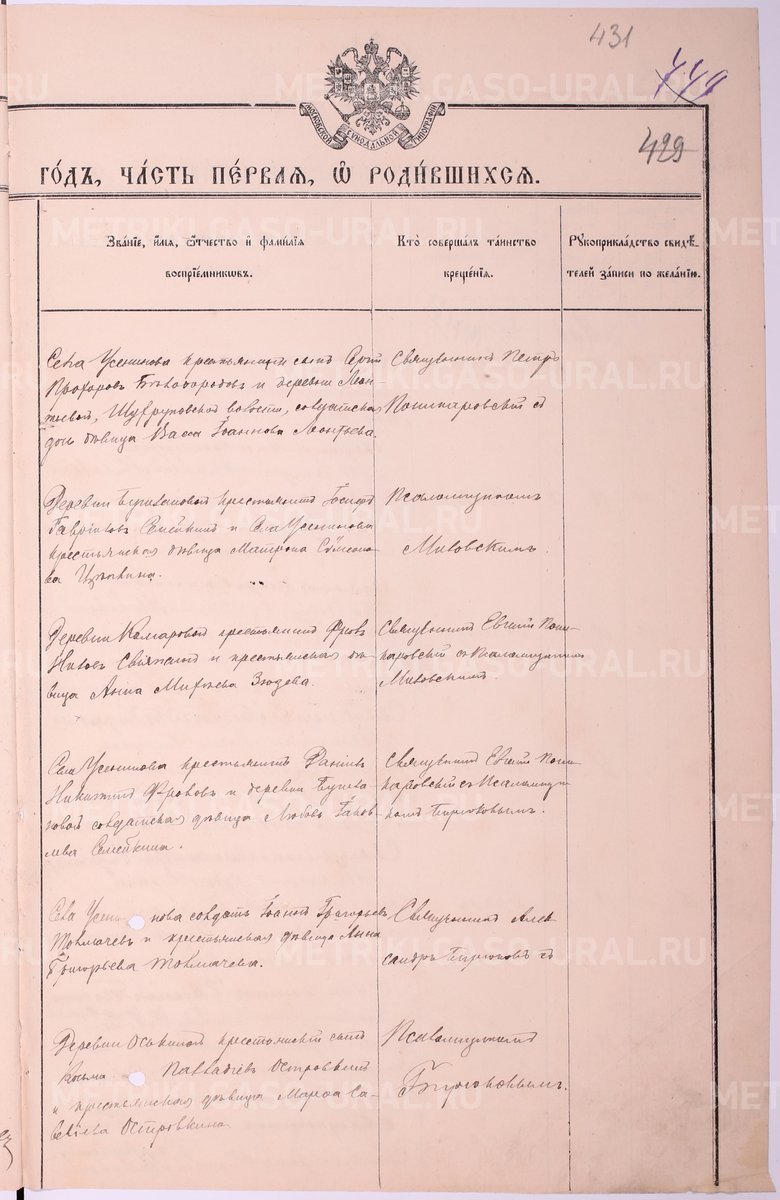 431
429
МОСКОВСКОЙ СѴНОДАЛЬНОЙ ТИПОГРАФІИ
ГО́ДЪ, ЧА́СТЬ ПЕ́РВАЯ, Ѿ РОДИ́ВШИХСЯ.
Зва́нїе, и҆́мѧ, ѻ҆́тчество и҆ фами́лїѧ
воспрїе́мникѡвъ.
Кто̀ соверша́лъ та́инство
креще́нїѧ.
Рꙋкоприкла́дство свидѣ́-
телей за́писи по жела́нїю.
Села Усенинова крестьянский сынъ Сергій
Прохоровъ и деревни Леон-
тьевой, Шуфруповской волости, солдатская
дочь дѣвица Васса Іоаннова Леонтьева.
Священникъ Петръ
съ
Деревни крестьянинъ
Семейкинъ и Села Усенинова
крестьянская дѣвица Матрона Сѵмеоно-
ва
Псаломщикомъ
Миловскимъ.
Деревни Комаровой крестьянинъ Фролъ
и крестьянская дѣ-
вица Анна Зюдева.
Священникъ Евгеній
съ Псаломщикомъ
Миловскимъ
Села Усенинова крестьянинъ Даніилъ
Никитинъ Фроловъ и деревни
солдатская дѣвица Любовь Іаков-
лева Семейкина.
Священникъ Евгеній
съ Псаломщи-
комъ Бирюковымъ.
Села Усенинова солдатъ Іоаннъ Григорьевъ
Толмачевъ и крестьянская дѣвица Анна
Григорьева Толмачева.
Священникъ Алек-
сандръ Бирюковъ съ
Деревни крестьянскій сынъ
Косьма Палладіевъ Островкинъ
и крестьянская дѣвица Марѳа Са-
веліева Островкина
Псаломщикомъ
Бирюковымъ.
METRIKI.GASO-URAL.RU